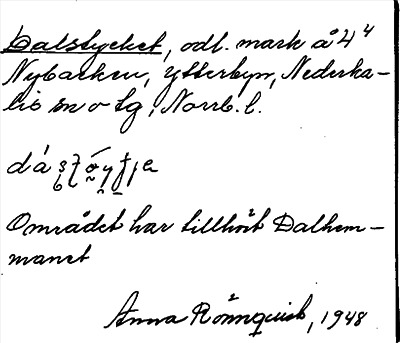 Dalstycket, odl. mark å 4⁴
Nybacken, Ytterbyn, Nederka-
lix sn o tg, Norrb. l.
Området har tillhört Dalhem-
manet
Anna Rönnquist, 1948